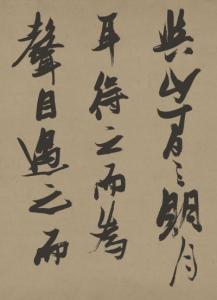 與山間之明月
耳得之而為
聲目遇之而